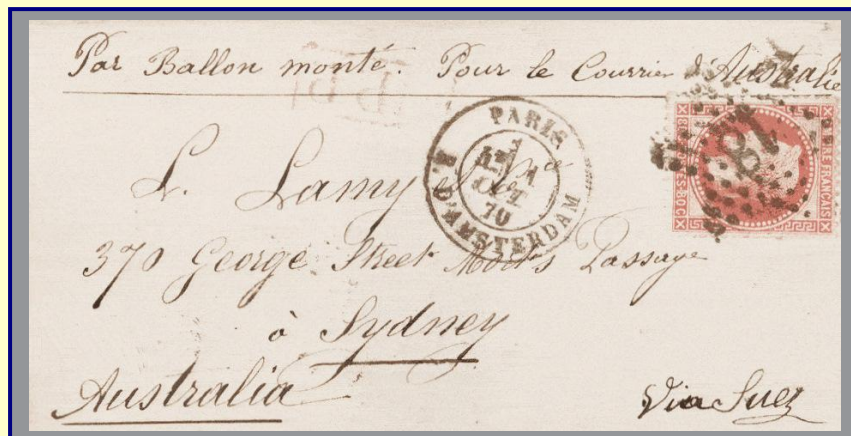 Par Ballon monté. Pour le Courrier d'Australie
PARIS
OCT
70
R. D'AMSTERDAM
FRANÇAIS
18
L. Lamy
370 George Street Mort's Passage
à Sydney
Australia
Via Suez